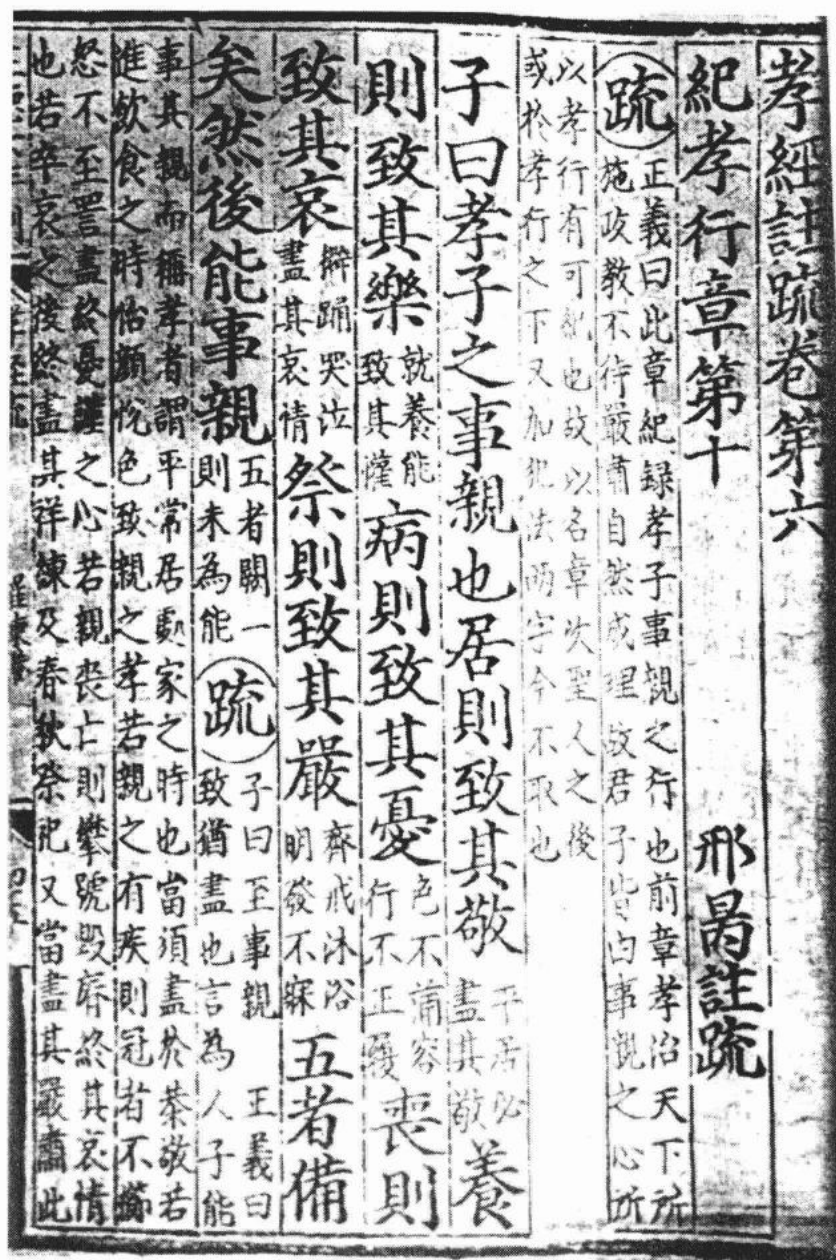 孝經註疏卷第六
紀孝行章第十 邢昺註疏
疏 正義曰此章紀録孝子事親之行也前章孝治天下所
施政教不待嚴肅自然成理故君子皆由事親之心所
以孝行有可紀也故以名章次聖人之後
或於孝行之下又加犯法兩字今不取也
子曰孝子之事親也居則致其敬 平居必盡其敬 養
則致其樂 就養能致其懽 病則致其憂 色不滿容行不正履 喪則
致其哀 擗踊哭泣盡其哀情 祭則致其嚴 齊戒沐浴明發不寐 五者備
矣然後能事親 五者闕一則未為能 疏 子曰至事親 正義曰
致猶盡也言為人子能
事其親而稱孝者謂平常居處家之時也當須盡於恭敬若
進飲食之時怡顏悅色致親之孝若親之有疾則冠者不櫛
怒不至詈盡終憂謹之心若親喪亡則攀號毀瘠終其哀情
也若卒哀之後終盡其祥練及春秋祭祀又當盡其嚴肅此